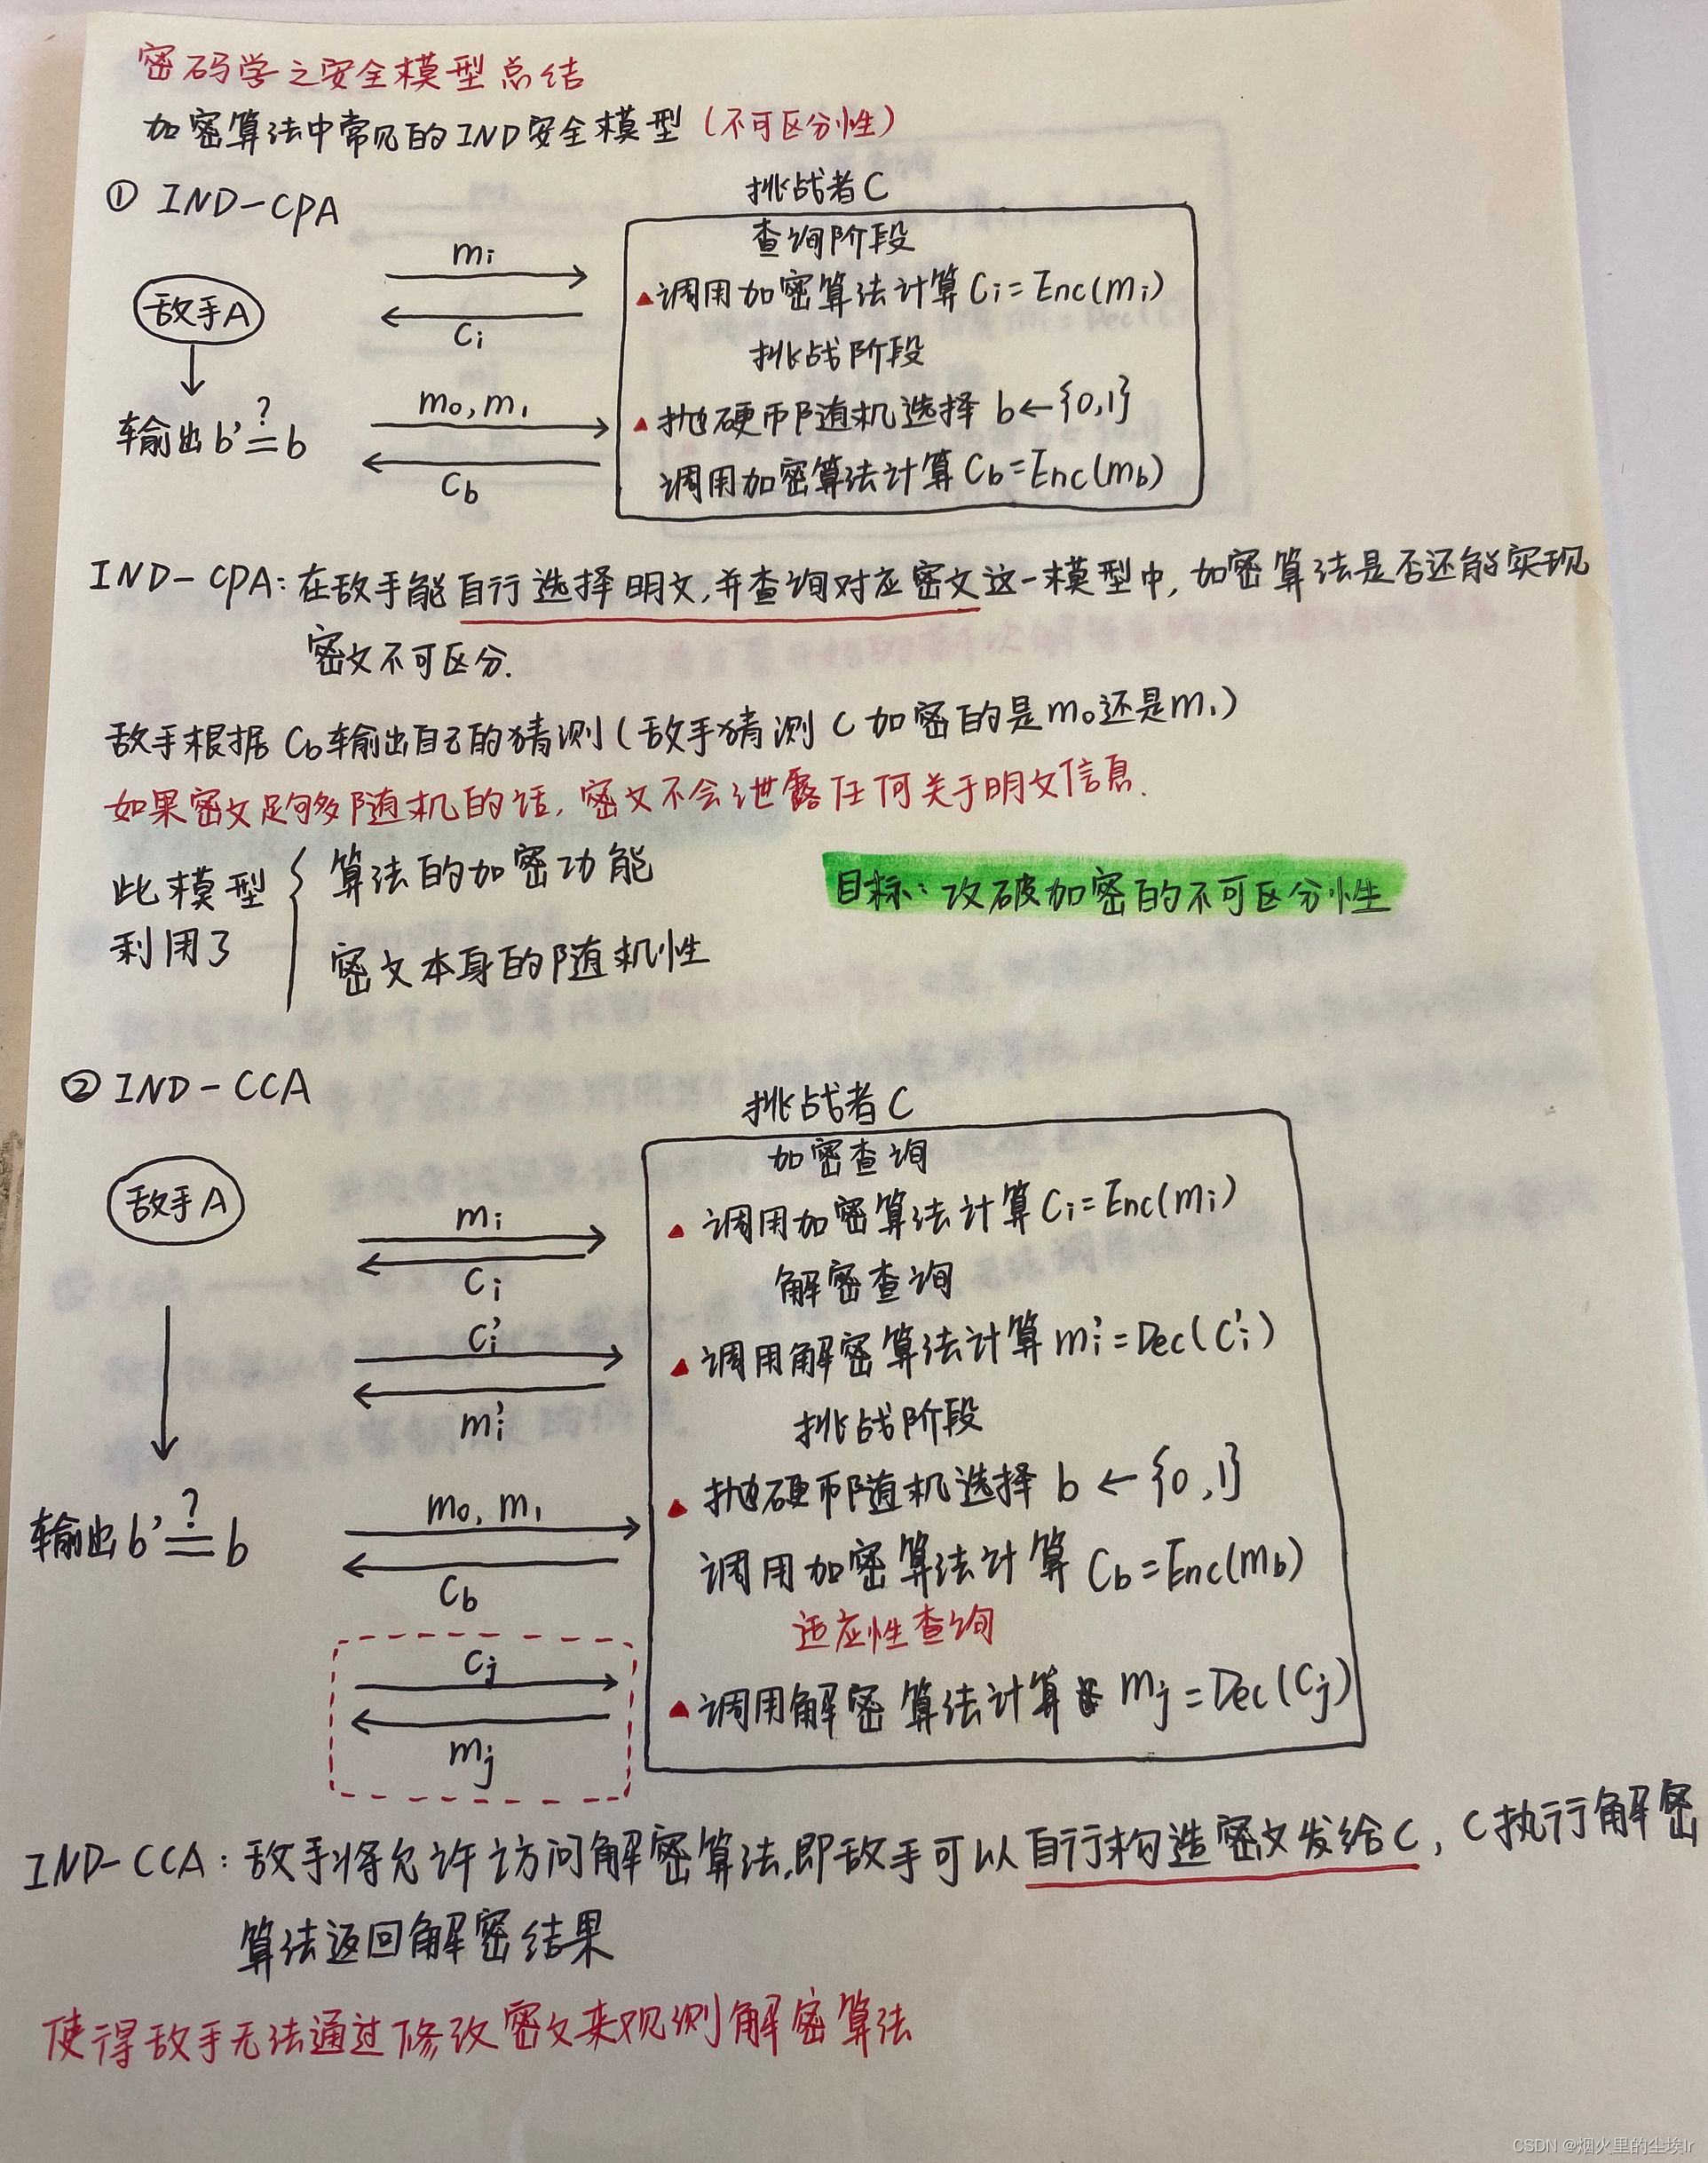 密码学之安全模型总结
加密算法中常见的IND安全模型（不可区分性）
① IND-CPA
挑战者C
查询阶段
mi
▲调用加密算法计算 Ci=Enc(mi)
敌手A
Ci
挑战阶段
m0,m1
▲抛硬币随机选择 b←{0,1}
输出b'≟b
Cb
调用加密算法计算 Cb=Enc(mb)
IND-CPA:在敌手能自行选择明文,并查询对应密文这一模型中,加密算法是否还能实现
密文不可区分.
敌手根据 Cb输出自己的猜测(敌手猜测 C加密的是m0还是m1)
如果密文足够多随机的话,密文不会泄露任何关于明文信息.
此模型利用了
算法的加密功能
密文本身的随机性
目标:攻破加密的不可区分性
② IND-CCA
挑战者C
加密查询
敌手A
mi
▲调用加密算法计算Ci=Enc(mi)
Ci
解密查询
Ci'
▲调用解密算法计算 mi'=Dec(Ci')
mi'
挑战阶段
m0,m1
▲抛硬币随机选择 b←{0,1}
输出b'≟b
Cb
调用加密算法计算 Cb=Enc(mb)
适应性查询
Cj
▲调用解密算法计算 mj=Dec(Cj)
mj
IND-CCA:敌手将允许访问解密算法,即敌手可以自行构造密文发给C,C执行解密
算法返回解密结果
使得敌手无法通过修改密文来观测解密算法
CSDN @烟火里的尘埃lr